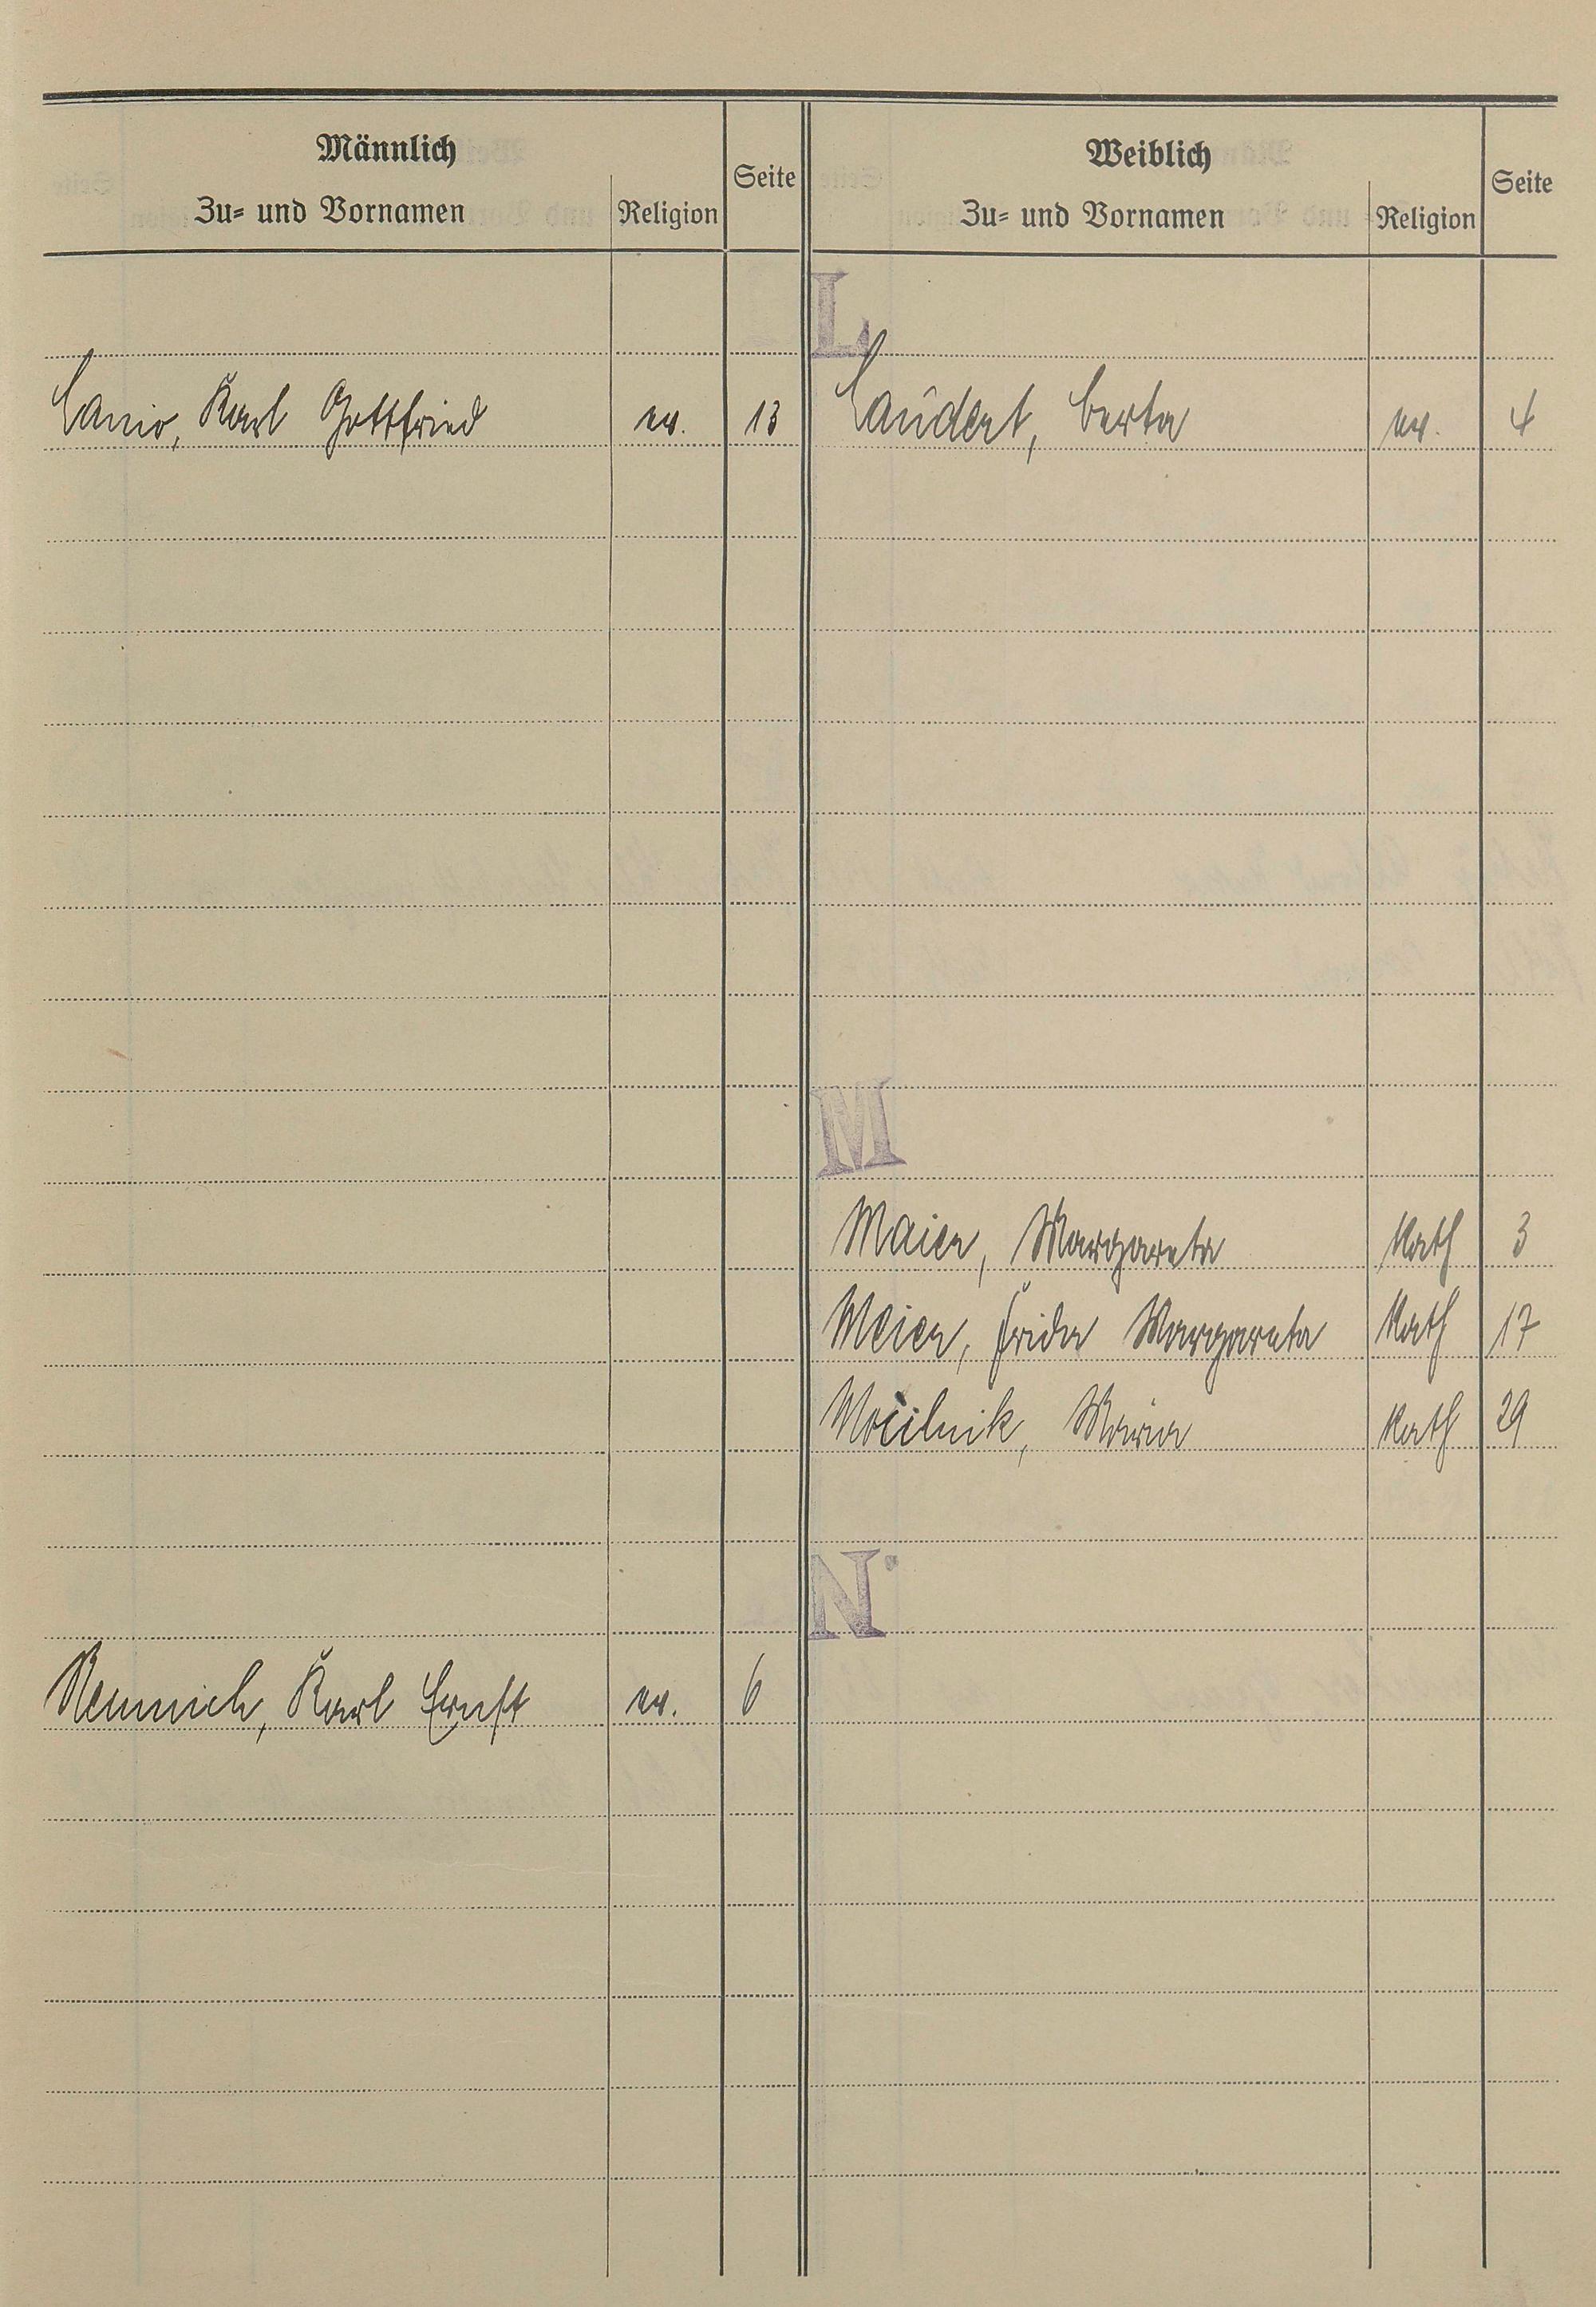 Männlich
Zu- und Vornamen Religion Seite
Weiblich
Zu- und Vornamen Religion Seite
L
Lanio, Karl Gottfried ev. 13
Laudert, Berta ev. 4
M
Maier, Margareta Kath 3
Meier, Frida Margareta Kath 17
Močilnik, Maria Kath 29
N
Nemnich, Karl Ernst ev. 6